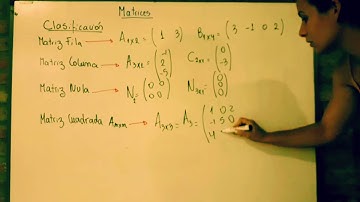 Matrices
Clasificación
Matriz Fila → A1x2 = ( 1 3 ) B1x4 = ( 3 -1 0 2 )
Matriz Columna → A3x1 = ( -1 2 -5 ) C3x1 = ( 0 -3 )
Matriz Nula → N2 = ( 0 0 0 0 ) N3x1 = ( 0 0 0 )
Matriz Cuadrada Anxn → A3x3 = A3 = ( 1 0 2
-1 5 0
4